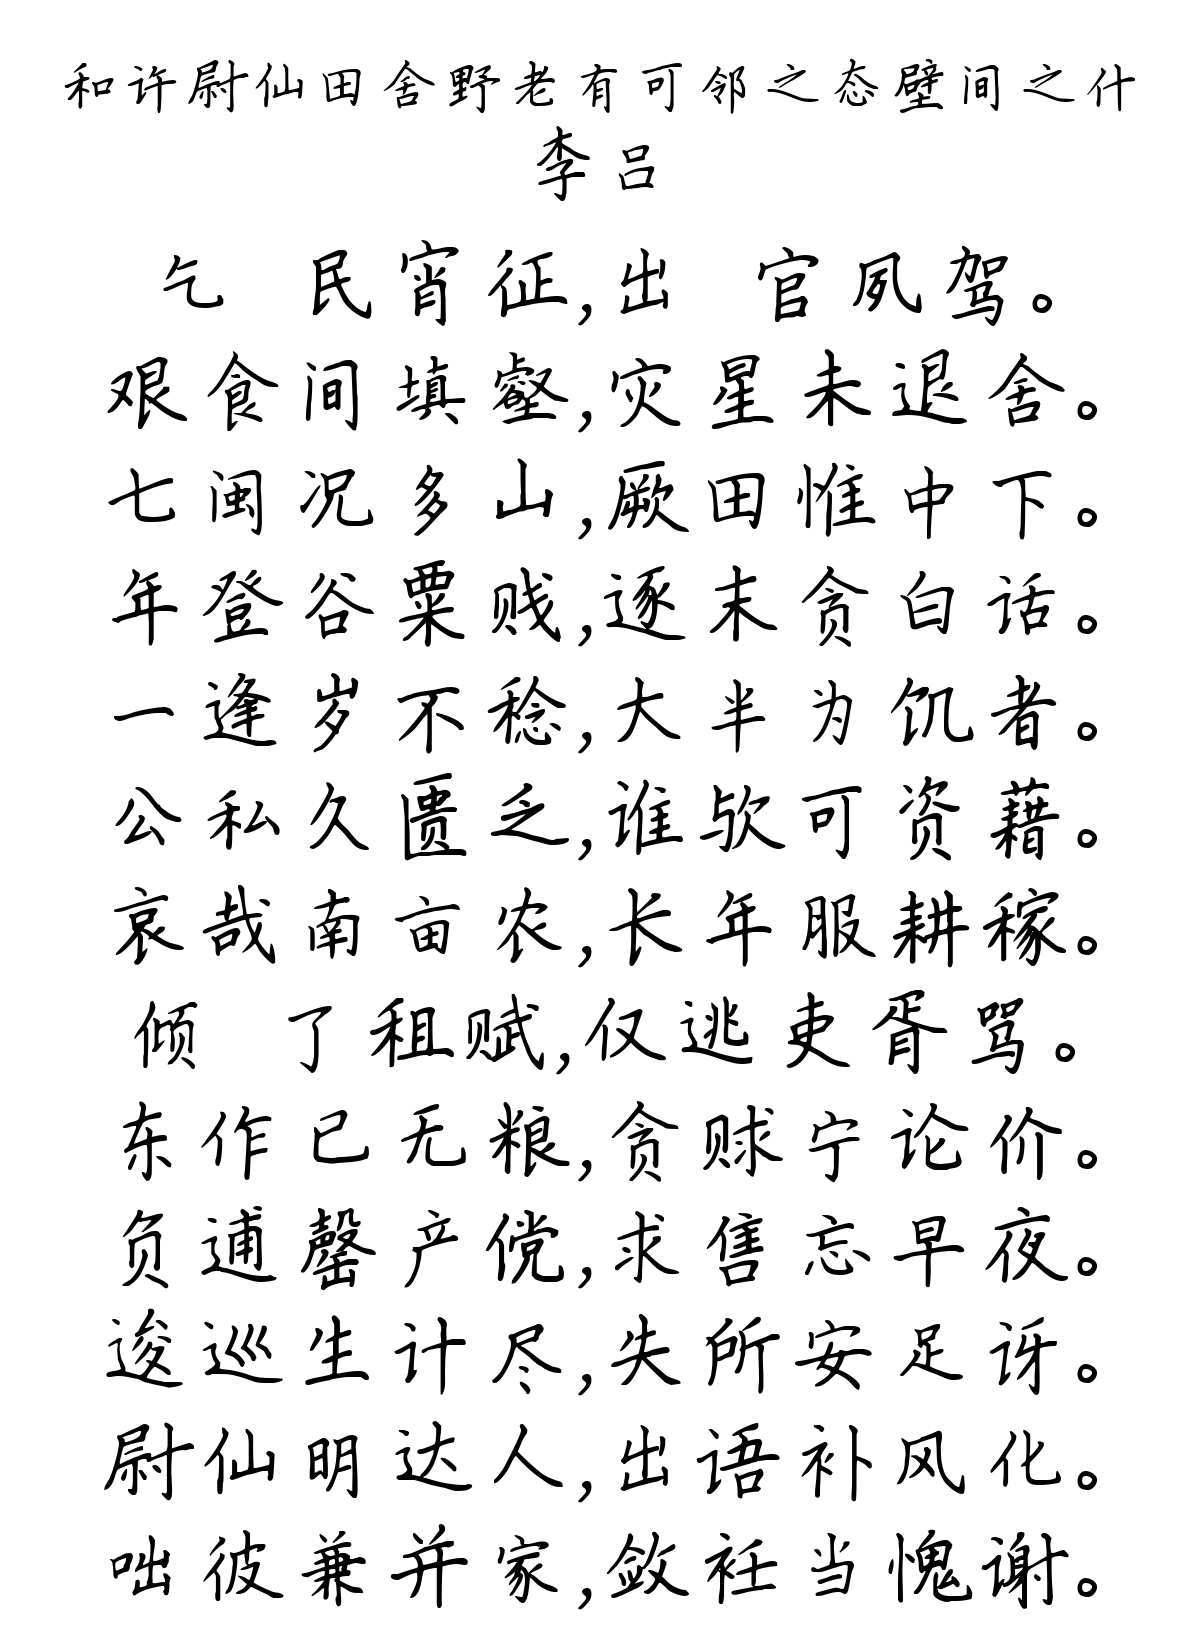 和许尉仙田舍野老有可邻之态壁间之什
李吕
乞 民宵征,出 官夙驾。
艰食间填壑,灾星未退舍。
七闽况多山,厥田惟中下。
年登谷粟贱,逐末贪白话。
一逢岁不稔,大半为饥者。
公私久匮乏,谁欤可资藉。
哀哉南亩农,长年服耕稼。
倾 了租赋,仅逃吏胥骂。
东作已无粮,贪赇宁论价。
负逋罄产傥,求售忘早夜。
逡巡生计尽,失所安足讶。
尉仙明达人,出语补风化。
咄彼兼并家,敛衽当愧谢。